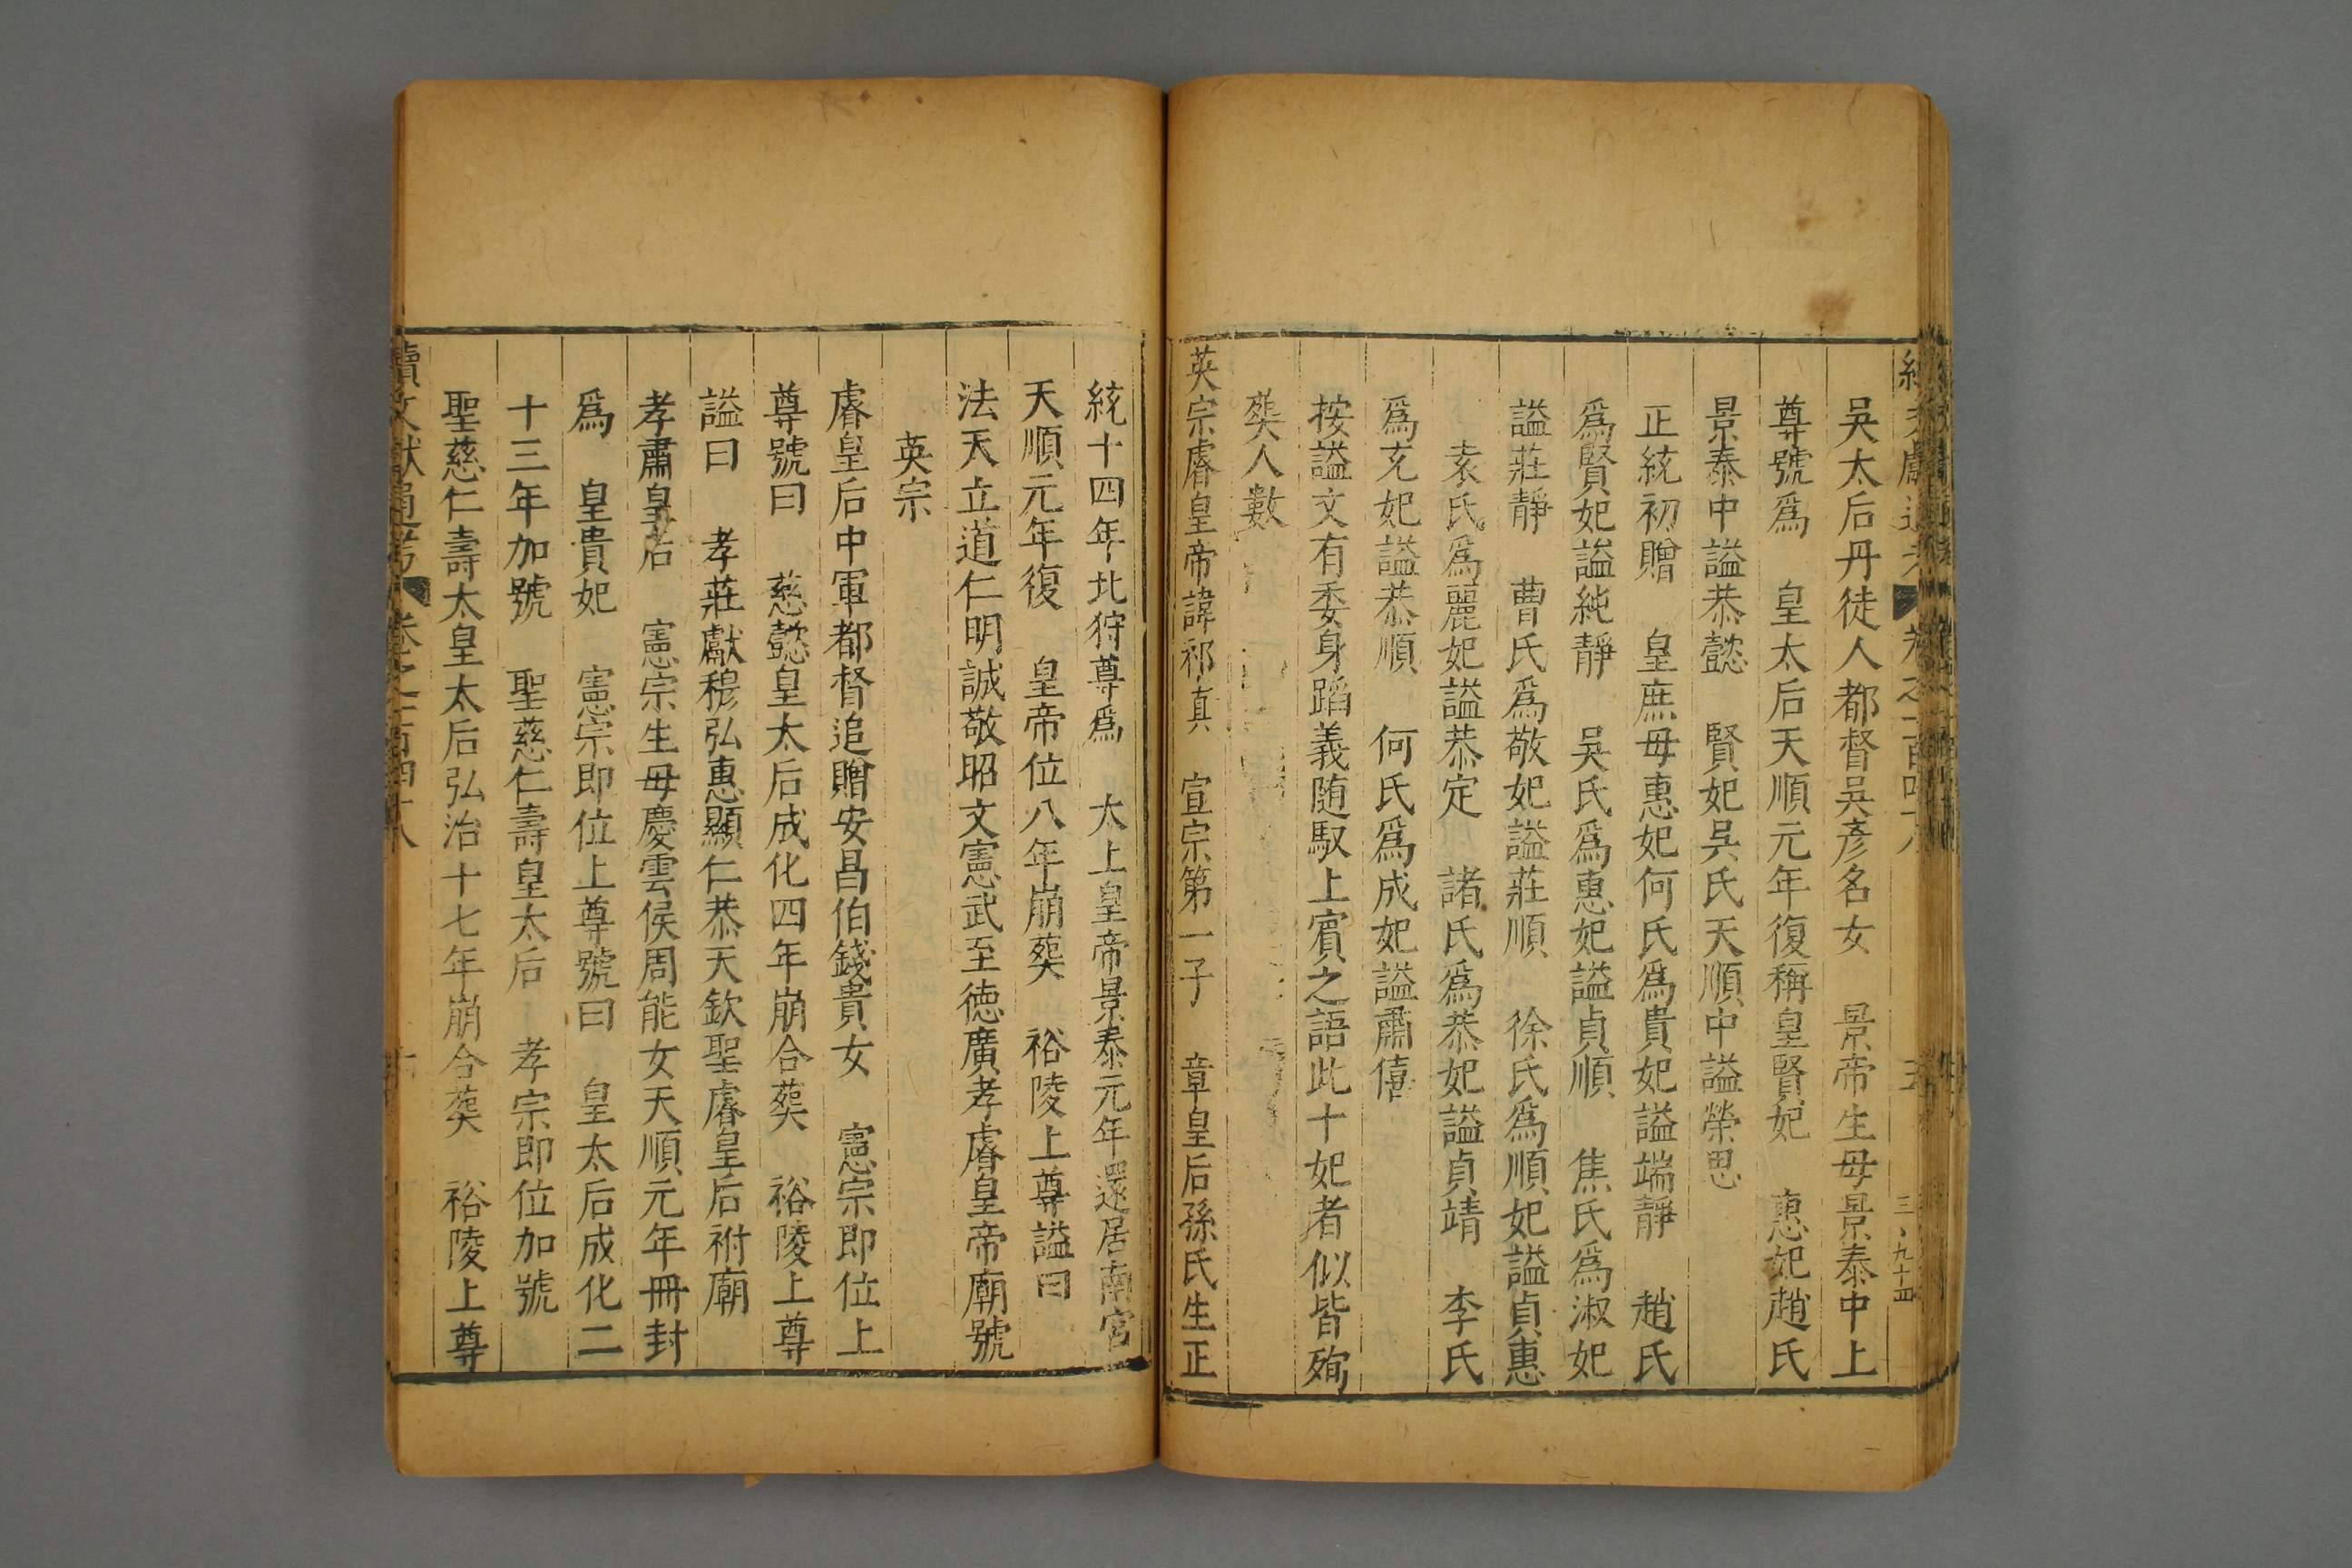 吳太后丹徒人都督吳彥名女　景帝生母景泰中上
尊號爲　皇太后天順元年復稱皇賢妃　惠妃趙氏
景泰中謚恭懿　賢妃吳氏天順中謚榮思
正統初贈　皇庶母惠妃何氏爲貴妃謚端靜　趙氏
爲賢妃謚純靜　吳氏爲惠妃謚貞順　焦氏爲淑妃
謚莊靜　曹氏爲敬妃謚莊順　徐氏爲順妃謚貞惠
袁氏爲麗妃謚恭定　諸氏爲恭妃謚貞靖　李氏
爲充妃謚恭順　何氏爲成妃謚肅僖
按謚文有委身蹈義随馭上賓之語此十妃者似皆殉
葬人數
英宗睿皇帝諱祁　宣宗第一子　章皇后孫氏生正
統十四年北狩尊爲　太上皇帝景泰元年還居南宮
天順元年復　皇帝位八年崩葬　裕陵上尊謚曰
法天立道仁明誠敬昭文憲武至徳廣孝睿皇帝廟號
英宗
睿皇后中軍都督追贈安昌伯錢貴女　憲宗即位上
尊號曰　慈懿皇太后成化四年崩合葬　裕陵上尊
謚曰　孝莊獻穆弘惠顯仁恭天欽聖睿皇后祔廟
孝肅皇后　憲宗生母慶雲侯周能女天順元年冊封
爲　皇貴妃　憲宗即位上尊號曰　皇太后成化二
十三年加號　聖慈仁壽皇太后　孝宗即位加號
聖慈仁壽太皇太后弘治十七年崩合葬　裕陵上尊